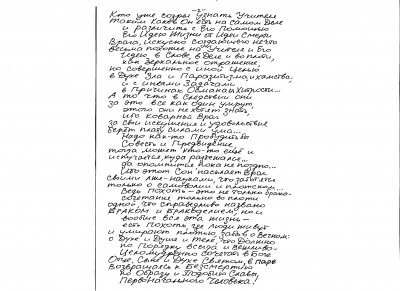 -2-
Кто уже созрел узнать Учителя
Таким Каков Он есть на самом Деле
и различить с Его Помощью
Его Идею Жизни от Идеи Смерти
Врага, искусно создавшего нечто
весьма похожее на Учителя и Его
Идею, в Слове, в Деле и во плоти,
как зеркальное отражение,
но совершенно с иной Целью
в Духе Зла и Паразитизма, хамства,
и с иными Задачами
в Причинах Обмана и Хитрости...
А то что в Следствии они
за это все как один умрут
этого они не хотят знать,
ибо коварный Враг
за свои искушения и удовольствия
берёт плату силами ума...
Надо как-то Пробудить
Совесть и Предвидение,
тогда может кто-то ещё и
испугался, куда разъехался...
да опомнится пока не поздно...
Ибо этот Сон насылает Враг
своими лже-науками, что заботятся
только о самоволии и плотском...
Ведь Похоть - это не только брако-
сочетание только во плоти
одной, что справедливо названо
Браком и Бракоделием, но и
вообще вся эта жизнь -
есть Похоть, где люди живут
и умирают плотью, забыв о Вечном:
о Духе и Душе и Теле, что Должно
по Порядку всегда и вешиво
Целомудренно сочетать в Боге
Отце, Сыне и Духе Святом, в паре
Возвращаясь к Бессмертию
по Образу и Подобию Славы,
Первоначального Человека!